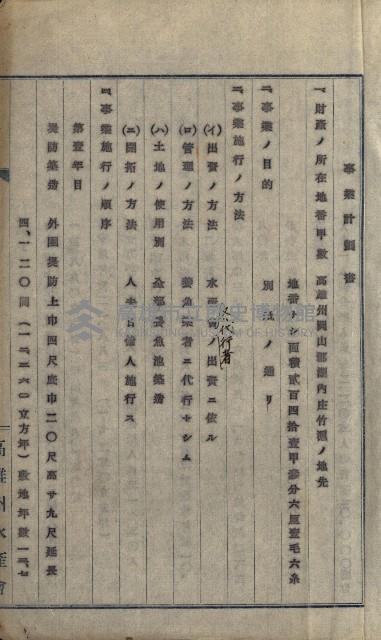 事業計劃書
一、財產ノ所在地番甲數 高雄州岡山郡湖內庄竹滬ノ地先
地番ナシ面積貳百四拾壹甲參分六厘壹毛六糸
一、事業ノ目的 別紙ノ通リ
一、事業施行ノ方法
(イ)出資ノ方法 水產會ノ出資ニ依ル
又代行者
(ロ)管理ノ方法 養魚業者ニ代行セシム
(ハ)土地ノ使用別 全部養魚池築造
(ニ)開拓ノ方法 人夫百倩人施行ス
一、事業施行ノ順序
第壹年目
堤防築造 外圍堤防上巾四尺底巾二〇尺高サ九尺延長
四、一二〇間(一二、三六〇立方坪)敷地坪數一三、七
高雄州水產會
高雄市立歷史博物館
MUSEUM OF HISTORY